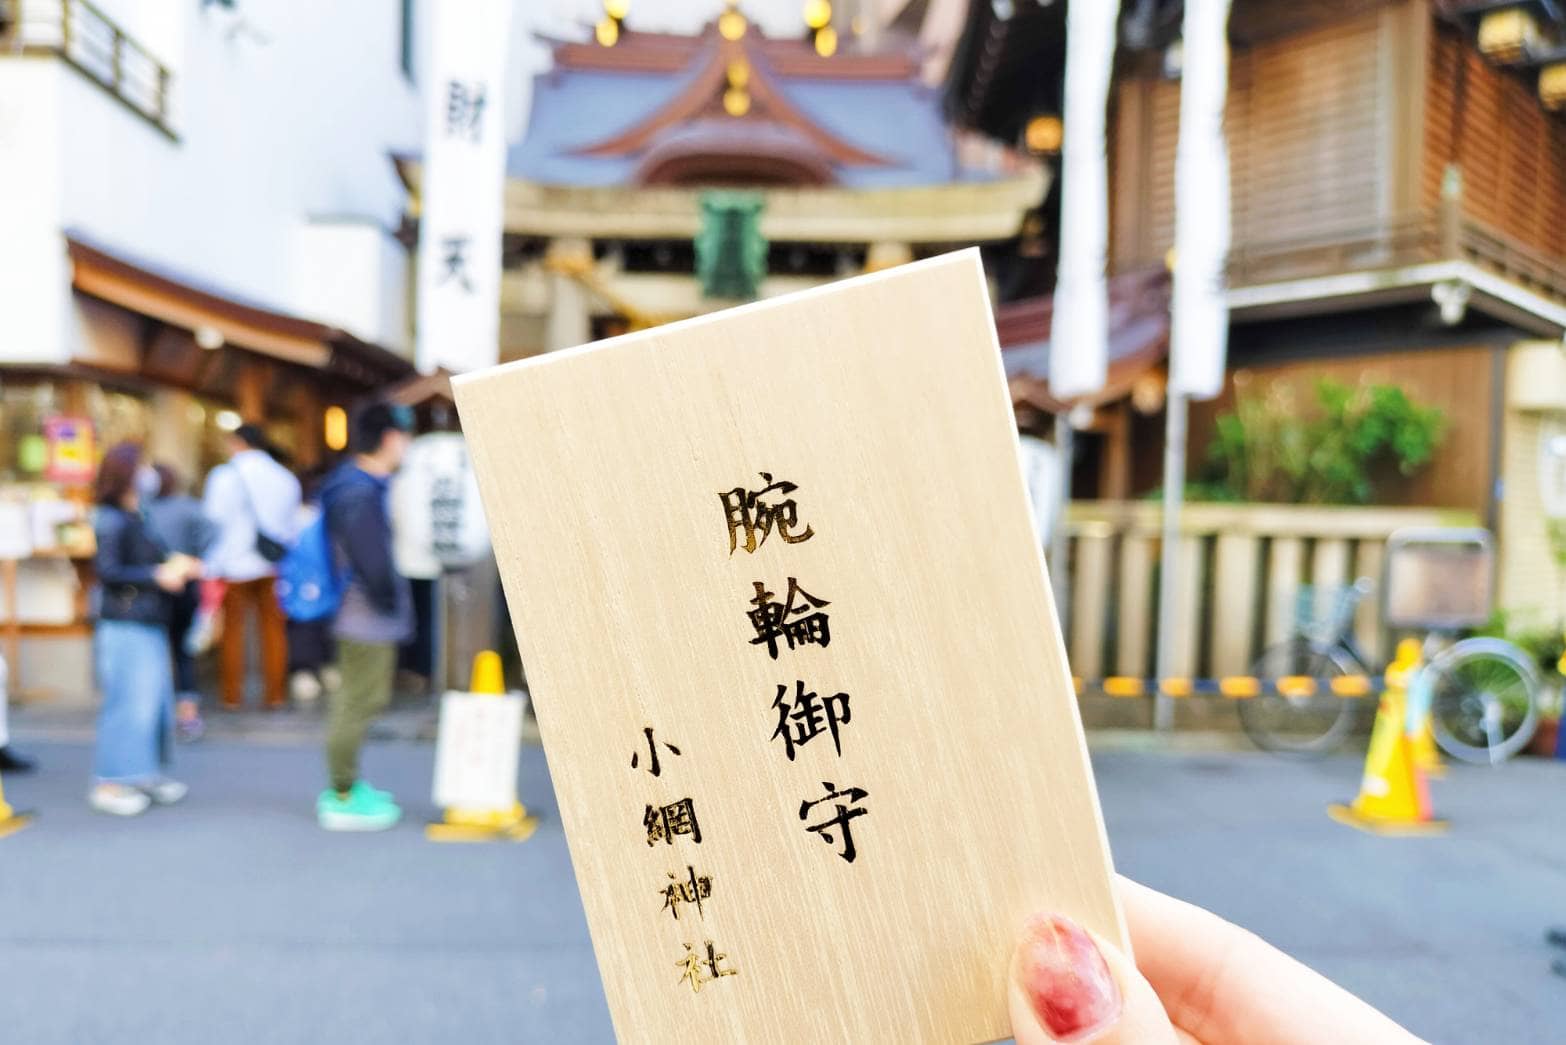 腕輪御守
小網神社
財天